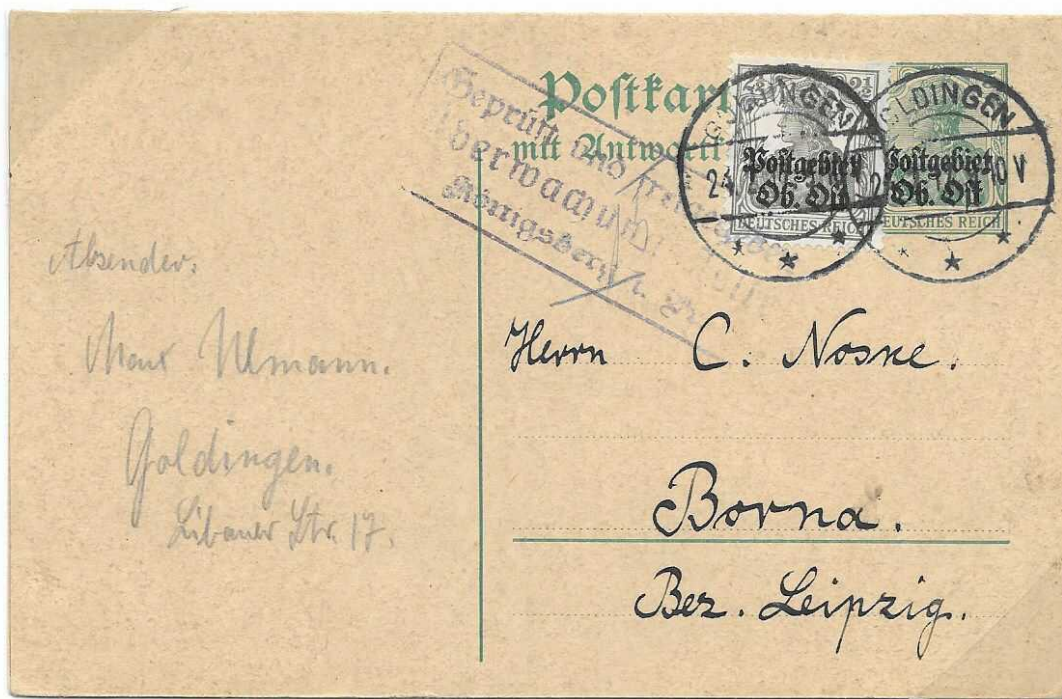 Postkart
mit Antwort
Geprüft und
Überwachun
Königsberg i. Pr.
2½
GOLDINGEN
Postgebiet
Ob. Ost
24
DEUTSCHES REICH
GOLDINGEN
Postgebiet
Ob. Ost
2 10 V
DEUTSCHES REICH
Absender.
Max Ulmann.
Goldingen.
Libauer Str. 17.
Herrn C. Noske.
Borna.
Bez. Leipzig.